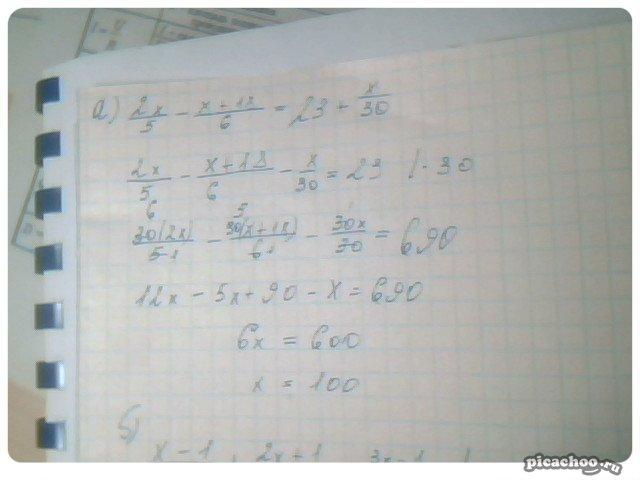 а) 2x/5 − x+18/6 = 23 + x/30
2x/5 − x+18/6 − x/30 = 23 |·30
6 5
30(2x)/5 − 30(x+18)/6 − 30x/30 = 690
12x − 5x + 90 − x = 690
6x = 600
x = 100
б)
x − 1 2x + 1 3x − 1
picachoo.ru